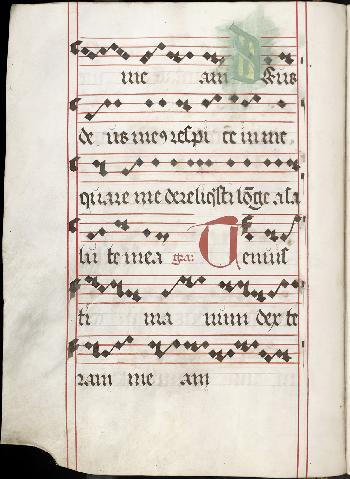 me am Deus
de us me9 respi ce in me
quare me dereliq̅sti lo̅ge a sa
lu te mea gra: Tenuis
ti ma num dex te
ram me am